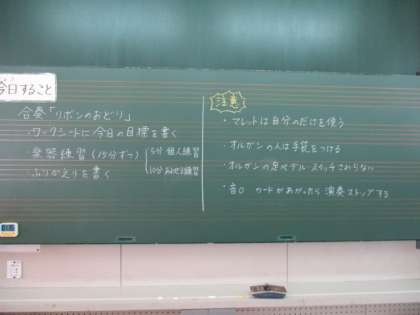 今日すること
合奏「リボンのおどり」
・ワークシートに今日の目標を書く
・楽器練習(15分ずつ)
5分 個人練習
10分 合わせる練習
・ふりかえりを書く
注意
・マレットは自分のだけを使う
・オルガンの人は手袋をつける
・オルガンの足ペダル・スイッチさわらない
・音0 カードがあがったら演奏ストップする